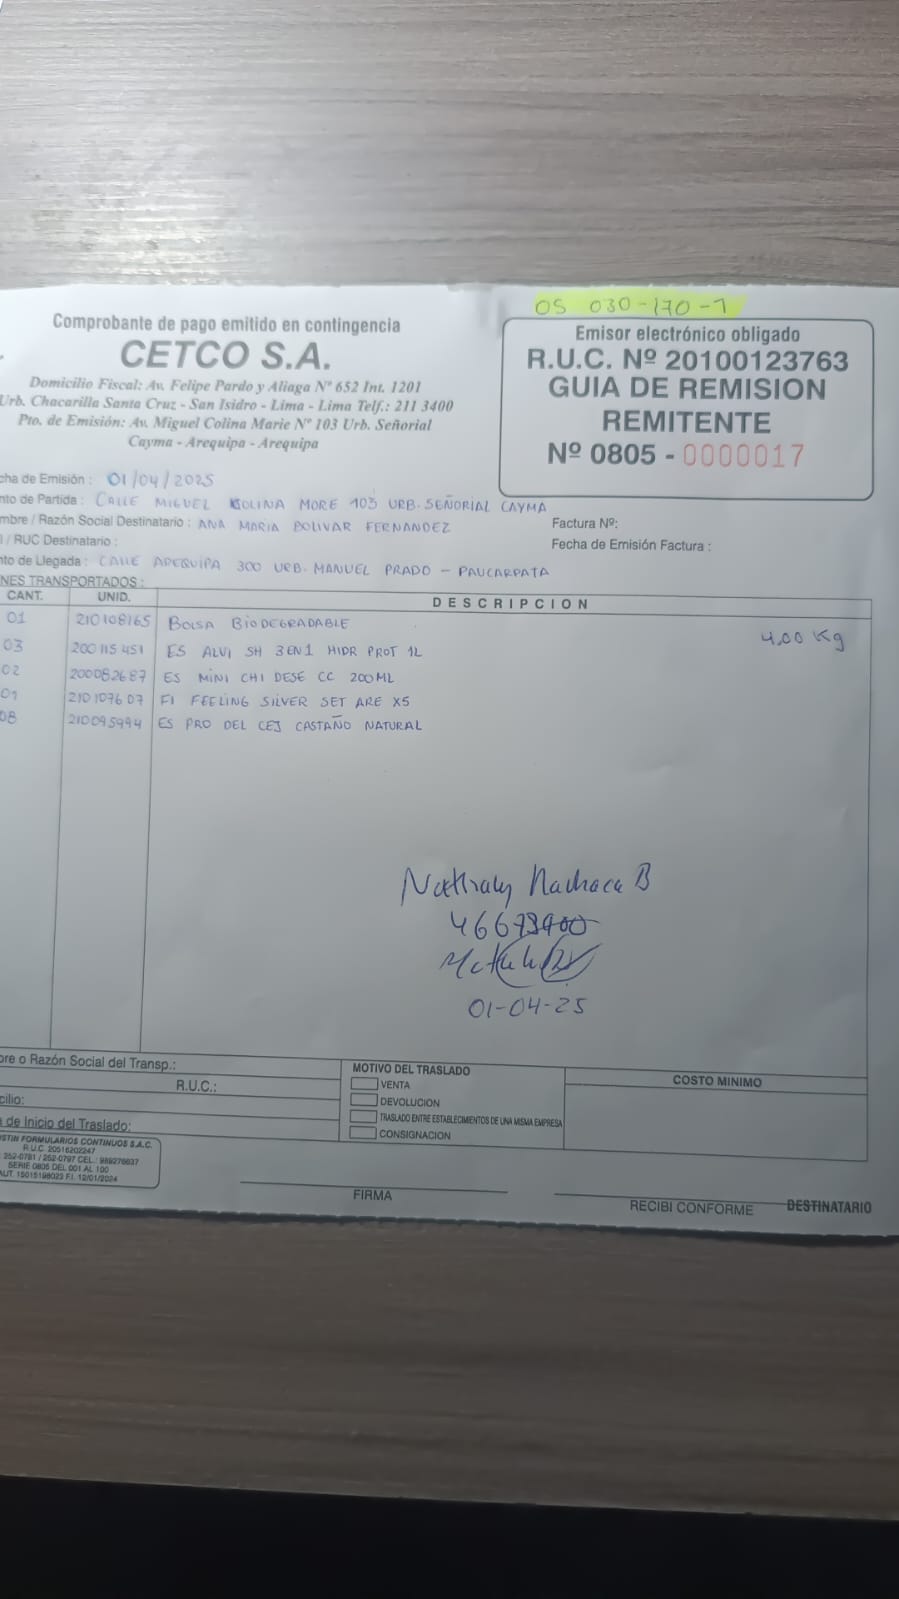 OS 030-170-1
Comprobante de pago emitido en contingencia
CETCO S.A.
Domicilio Fiscal: Av. Felipe Pardo y Aliaga Nº 652 Int. 1201
Urb. Chacarilla Santa Cruz - San Isidro - Lima - Lima Telf.: 211 3400
Pto. de Emisión: Av. Miguel Colina Marie Nº 103 Urb. Señorial
Cayma - Arequipa - Arequipa
Emisor electrónico obligado
R.U.C. Nº 20100123763
GUIA DE REMISION
REMITENTE
Nº 0805 - 0000017
cha de Emisión : 01/04/2025
nto de Partida : CALLE MIGUEL COLINA MORE 103 URB. SEÑORIAL CAYMA
mbre / Razón Social Destinatario : ANA MARIA BOLIVAR FERNANDEZ
Factura Nº:
I / RUC Destinatario :
Fecha de Emisión Factura :
nto de Llegada : CALLE AREQUIPA 300 URB. MANUEL PRADO - PAUCARPATA
NES TRANSPORTADOS :
CANT. UNID. DESCRIPCION
01 210108165 BOLSA BIODEGRADABLE 4,00 Kg
03 200115451 ES ALVI SH 3EN1 HIDR PROT 1L
02 200082687 ES MINI CHI DESE CC 200ML
01 210107607 FI FEELING SILVER SET ARE X5
08 210095994 ES PRO DEL CEJ CASTAÑO NATURAL
Nathaly Machaca B
01-04-25
bre o Razón Social del Transp.:
R.U.C.:
cilio:
a de Inicio del Traslado:
MOTIVO DEL TRASLADO
VENTA
DEVOLUCION
TRASLADO ENTRE ESTABLECIMIENTOS DE UNA MISMA EMPRESA
CONSIGNACION
COSTO MINIMO
STIN FORMULARIOS CONTINUOS S.A.C.
R.U.C. 20516202247
252-0781 / 252-0797 CEL.: 989276637
SERIE 0805 DEL 001 AL 100
AUT. 15015198023 F.I. 12/01/2024
FIRMA
RECIBI CONFORME
DESTINATARIO